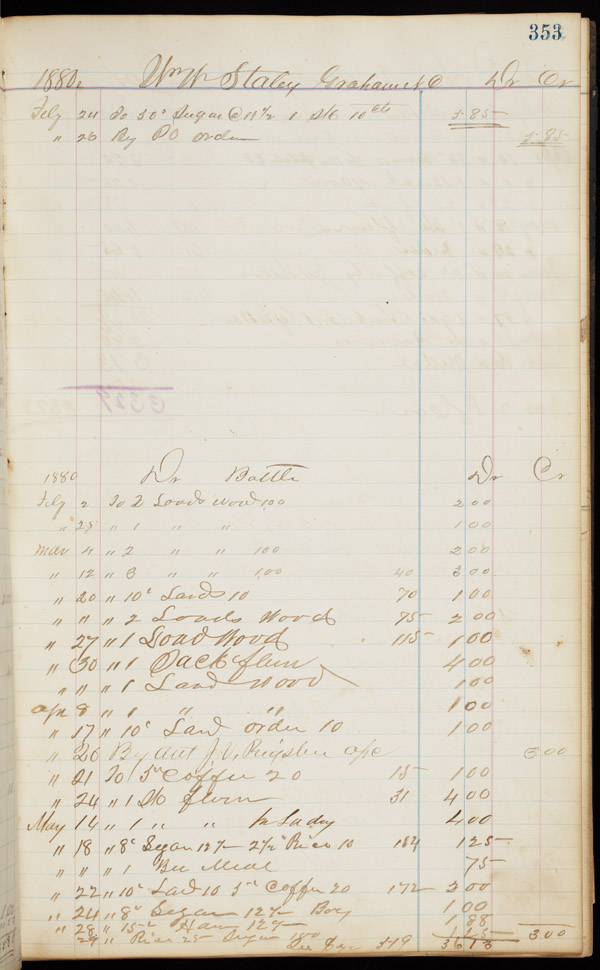 353
1880 Wm Staley Graham N C Dr Cr
Feby 24 To 50# Sugar @ 11½ 1 10cts 5.85
" 26 By PO order 5.85
3327
1880 Dr Battle Dr Cr
Feby 2 To 2 Loads Wood 100 2 00
" 25 " 1 " " 1 00
Mar 4 " 2 " " 100 2 00
" 12 " 3 " " 100 40 3 00
" 20 " 10# Lard 10 70 1 00
" " " 2 Loads Wood 75 2 00
" 27 " 1 Load Wood 115 1 00
" 30 " 1 Sack flour 4 00
" " " 1 Load Wood 1 00
Apr 8 " 1 " " 1 00
" 17 " 10# Lard order 10 1 00
" 20 By 3 00
" 21 To 5# Coffee 20 15 1 00
" 24 " 1 Sk flour 31 4 00
May 14 " 1 " " 4 00
" 18 " 8# Sugar 12½ 2½# Rice 10 184 1 25
" " " 1 Bu Meal 75
" 22 " 10# Lard 10 5# Coffee 20 172 2 00
" 24 " 8# Sugar 12½ Boy 1 00
" 28 " 15# Ham 12½ 1 88
" 29 " Rice 25 Sugar 100 1 25 3 00
319 36 13